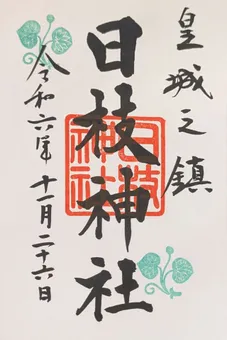 皇城之鎮
日枝神社
日枝神社
令和六年 十一月二十六日